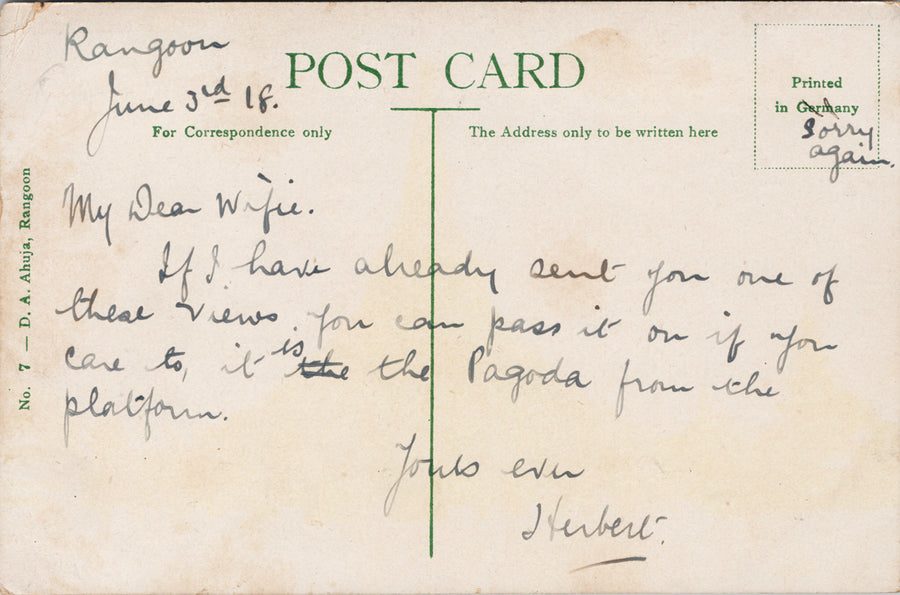 Rangoon
June 3rd 18.
POST CARD
For Correspondence only
The Address only to be written here
Printed
in Germany
Sorry
again.
No. 7 — D. A. Ahuja, Rangoon
My Dear Wifie.
If I have already sent you one of
these views. You can pass it on if you
care to, it is the the Pagoda from the
platform.
Yours ever
Herbert.